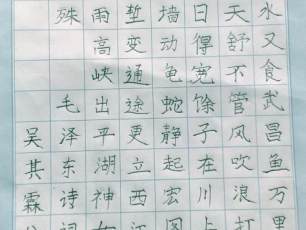 水又食武昌鱼万里
天舒不管风吹浪打
日得宽馀子在川上
墙动龟蛇静起宏图
堑变通途更立西江
雨高峡出平湖神女
殊毛泽东诗词
吴其霖